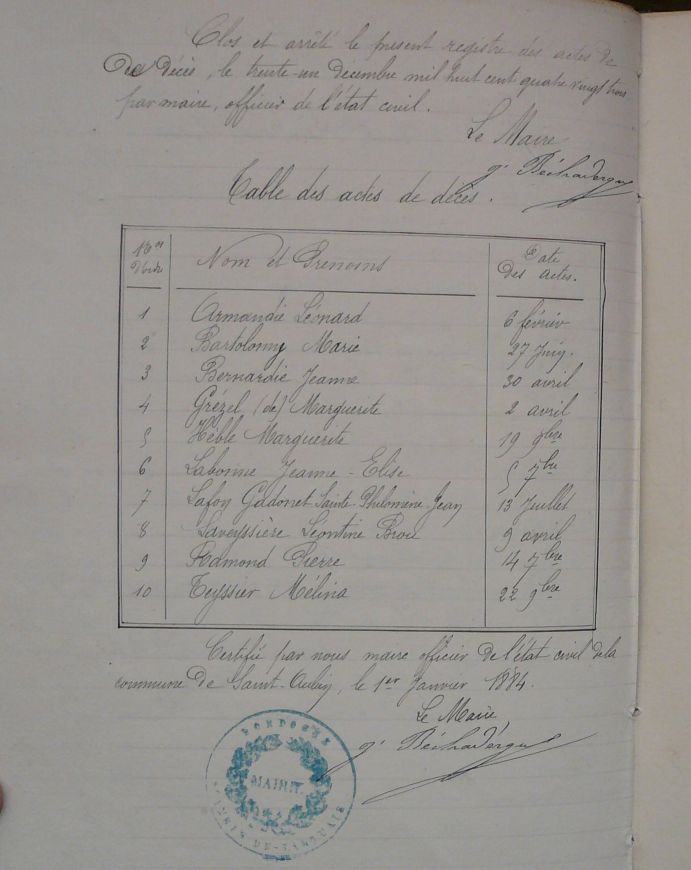 Clos et arrêté le present registre des actes de
de décès, le trente-un décembre mil huit cent quatre vingt trois
par maire, officier de l'état civil.
Le Maire
Table des actes de décès.
Nos
d'ordre
Nom et Prenoms
Date
des actes.
1 Armandie Léonard 6 février
2 Bartolomy Marie 27 Juin.
3 Bernardie Jeanne 30 avril
4 Grézel (de) Marguerite 2 avril
5 Hèble Marguerite 19 9bre
6 Labonne Jeanne-Elise 5 7bre
7 Lafon Gadonet Sainte Philomène Jean 13 Juillet
8 Laveyssière Léontine 9 avril
9 Ramond Pierre 14 7bre
10 Teyssier Mélina 22 9bre
Certifié par nous maire officier de l'état civil de la
commune de Saint-Aubin, le 1er Janvier 1884.
Le Maire,
DORDOGNE
MAIRIE
DE-LANQUAIS